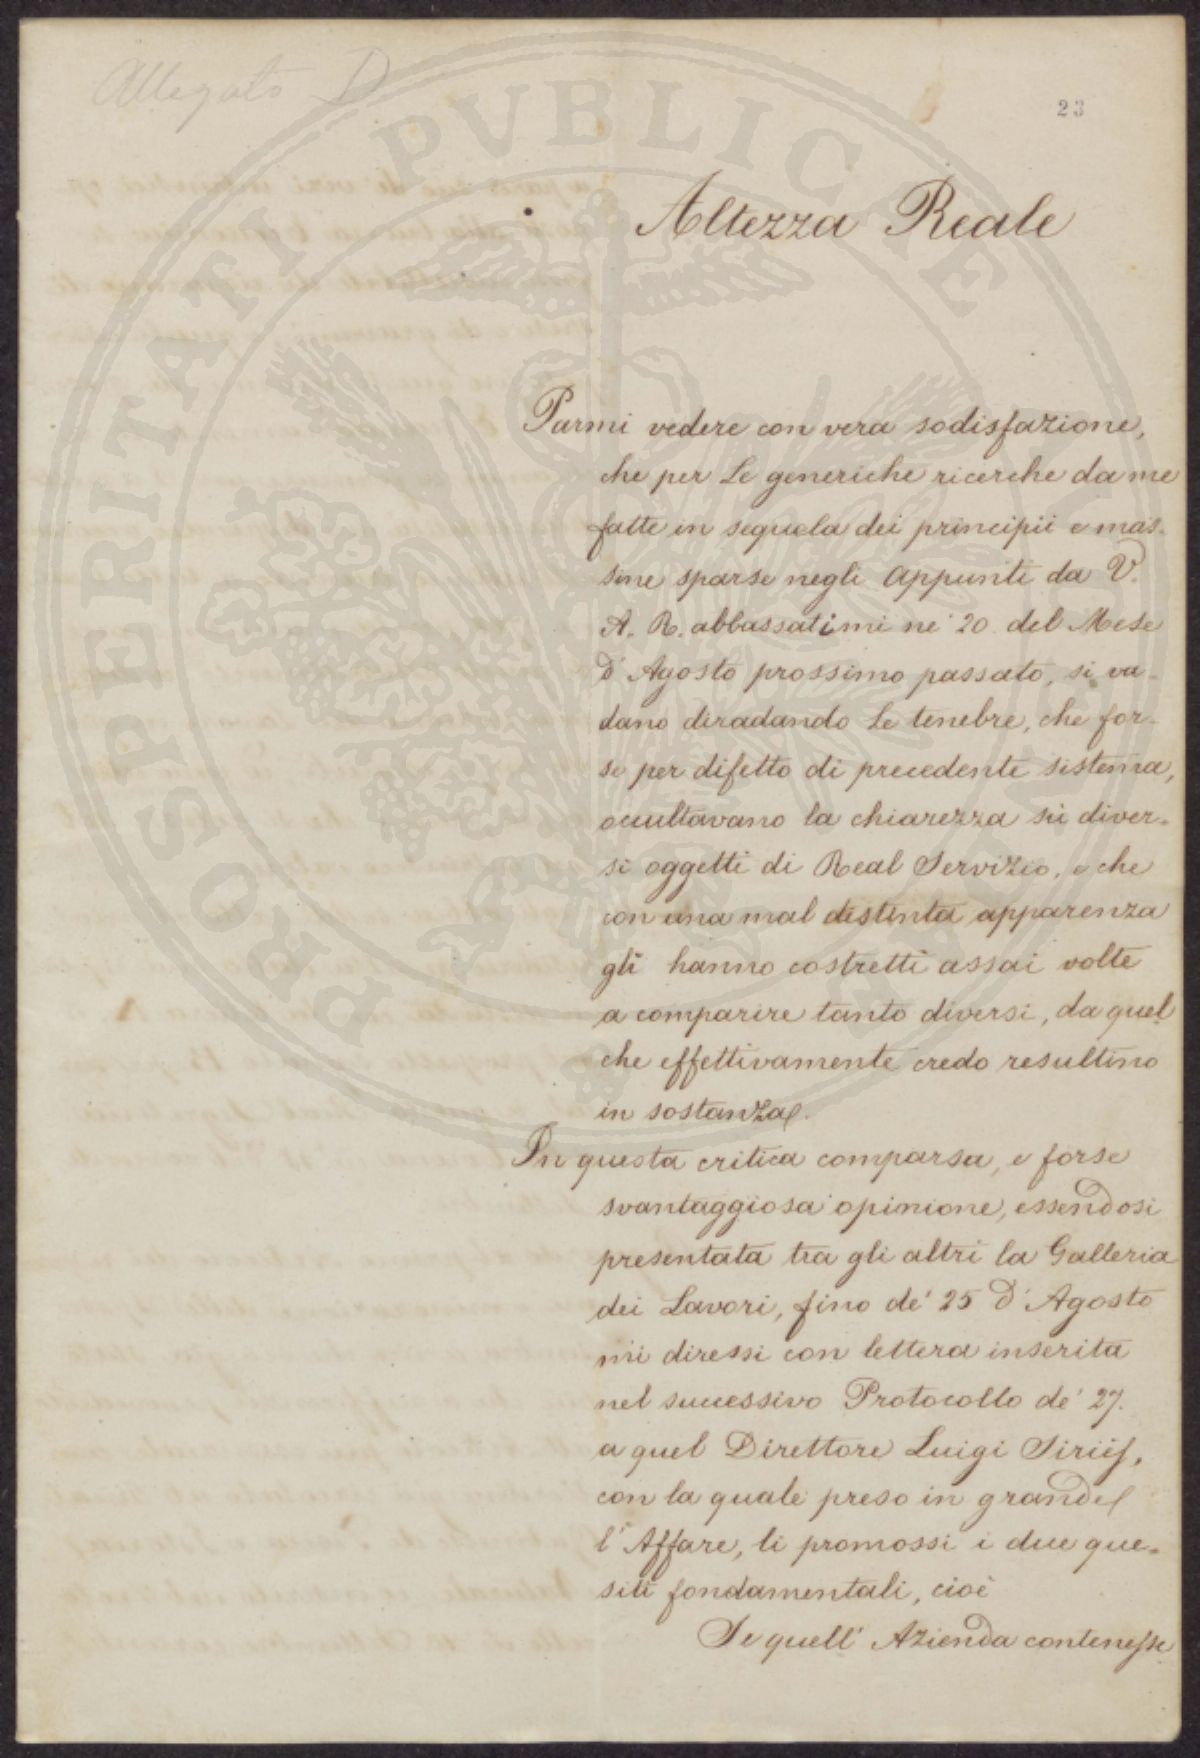 Allegato D
23
PROSPERITATI PUBLICAE
Altezza Reale
Parmi vedere con vera sodisfazione,
che per Le generiche ricerche da me
fatte in sequela dei principii e mas-
sime sparse negli Appunti da V.
A. R. abbassatimi ne' 20. del Mese
d'Agosto prossimo passato, si va-
dano diradando Le tenebre, che for-
se per difetto di precedente sistema,
occultavano la chiarezza sù diver-
si oggetti di Real Servizio, e che
con una mal distinta apparenza
gli hanno costretti assai volte
a comparire tanto diversi, da quel
che effettivamente credo resultino
in sostanza.
In questa critica comparsa, e forse
svantaggiosa opinione, essendosi
presentata tra gli altri la Galleria
dei Lavori, fino de' 25 d'Agosto
mi diressi con lettera inserita
nel successivo Protocollo de' 27.
a quel Direttore Luigi Siriès,
con la quale preso in grande
l'Affare, li promossi i due que-
siti fondamentali, cioè
Se quell' Azienda contenesse